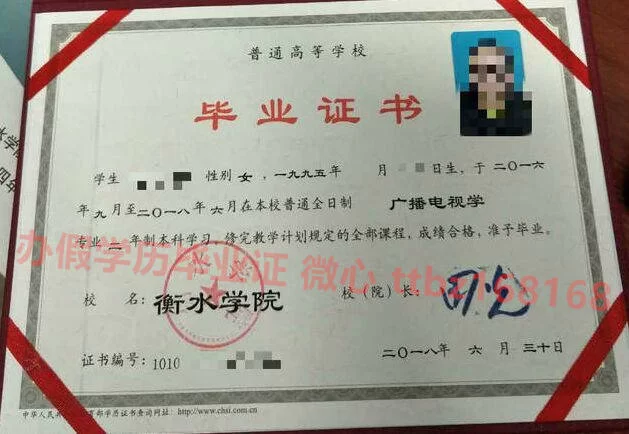 普通高等学校
毕业证书
学生 性别 女，一九九五年 月 日生，于二〇一六
年九月至二〇一八年六月在本校普通全日制 广播电视学
专业 二 年制本科学习，修完教学计划规定的全部课程，成绩合格，准予毕业。
办假学历毕业证 微心 168168
校 名： 衡水学院 校（院）长：
证书编号：1010 二〇一八年 六 月 三十日
中华人民 育部学历证书查询网址：http://www.chsi.com.cn
水学院
四年